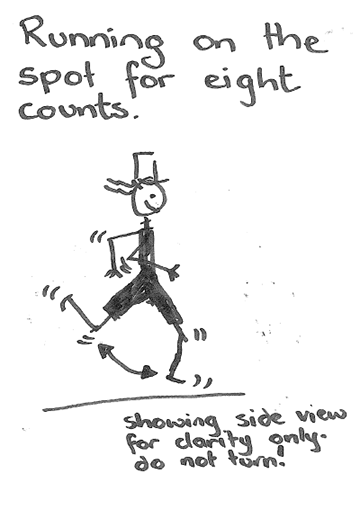 Running on the
spot for eight
counts.
showing side view
for clarity only.
do not turn!